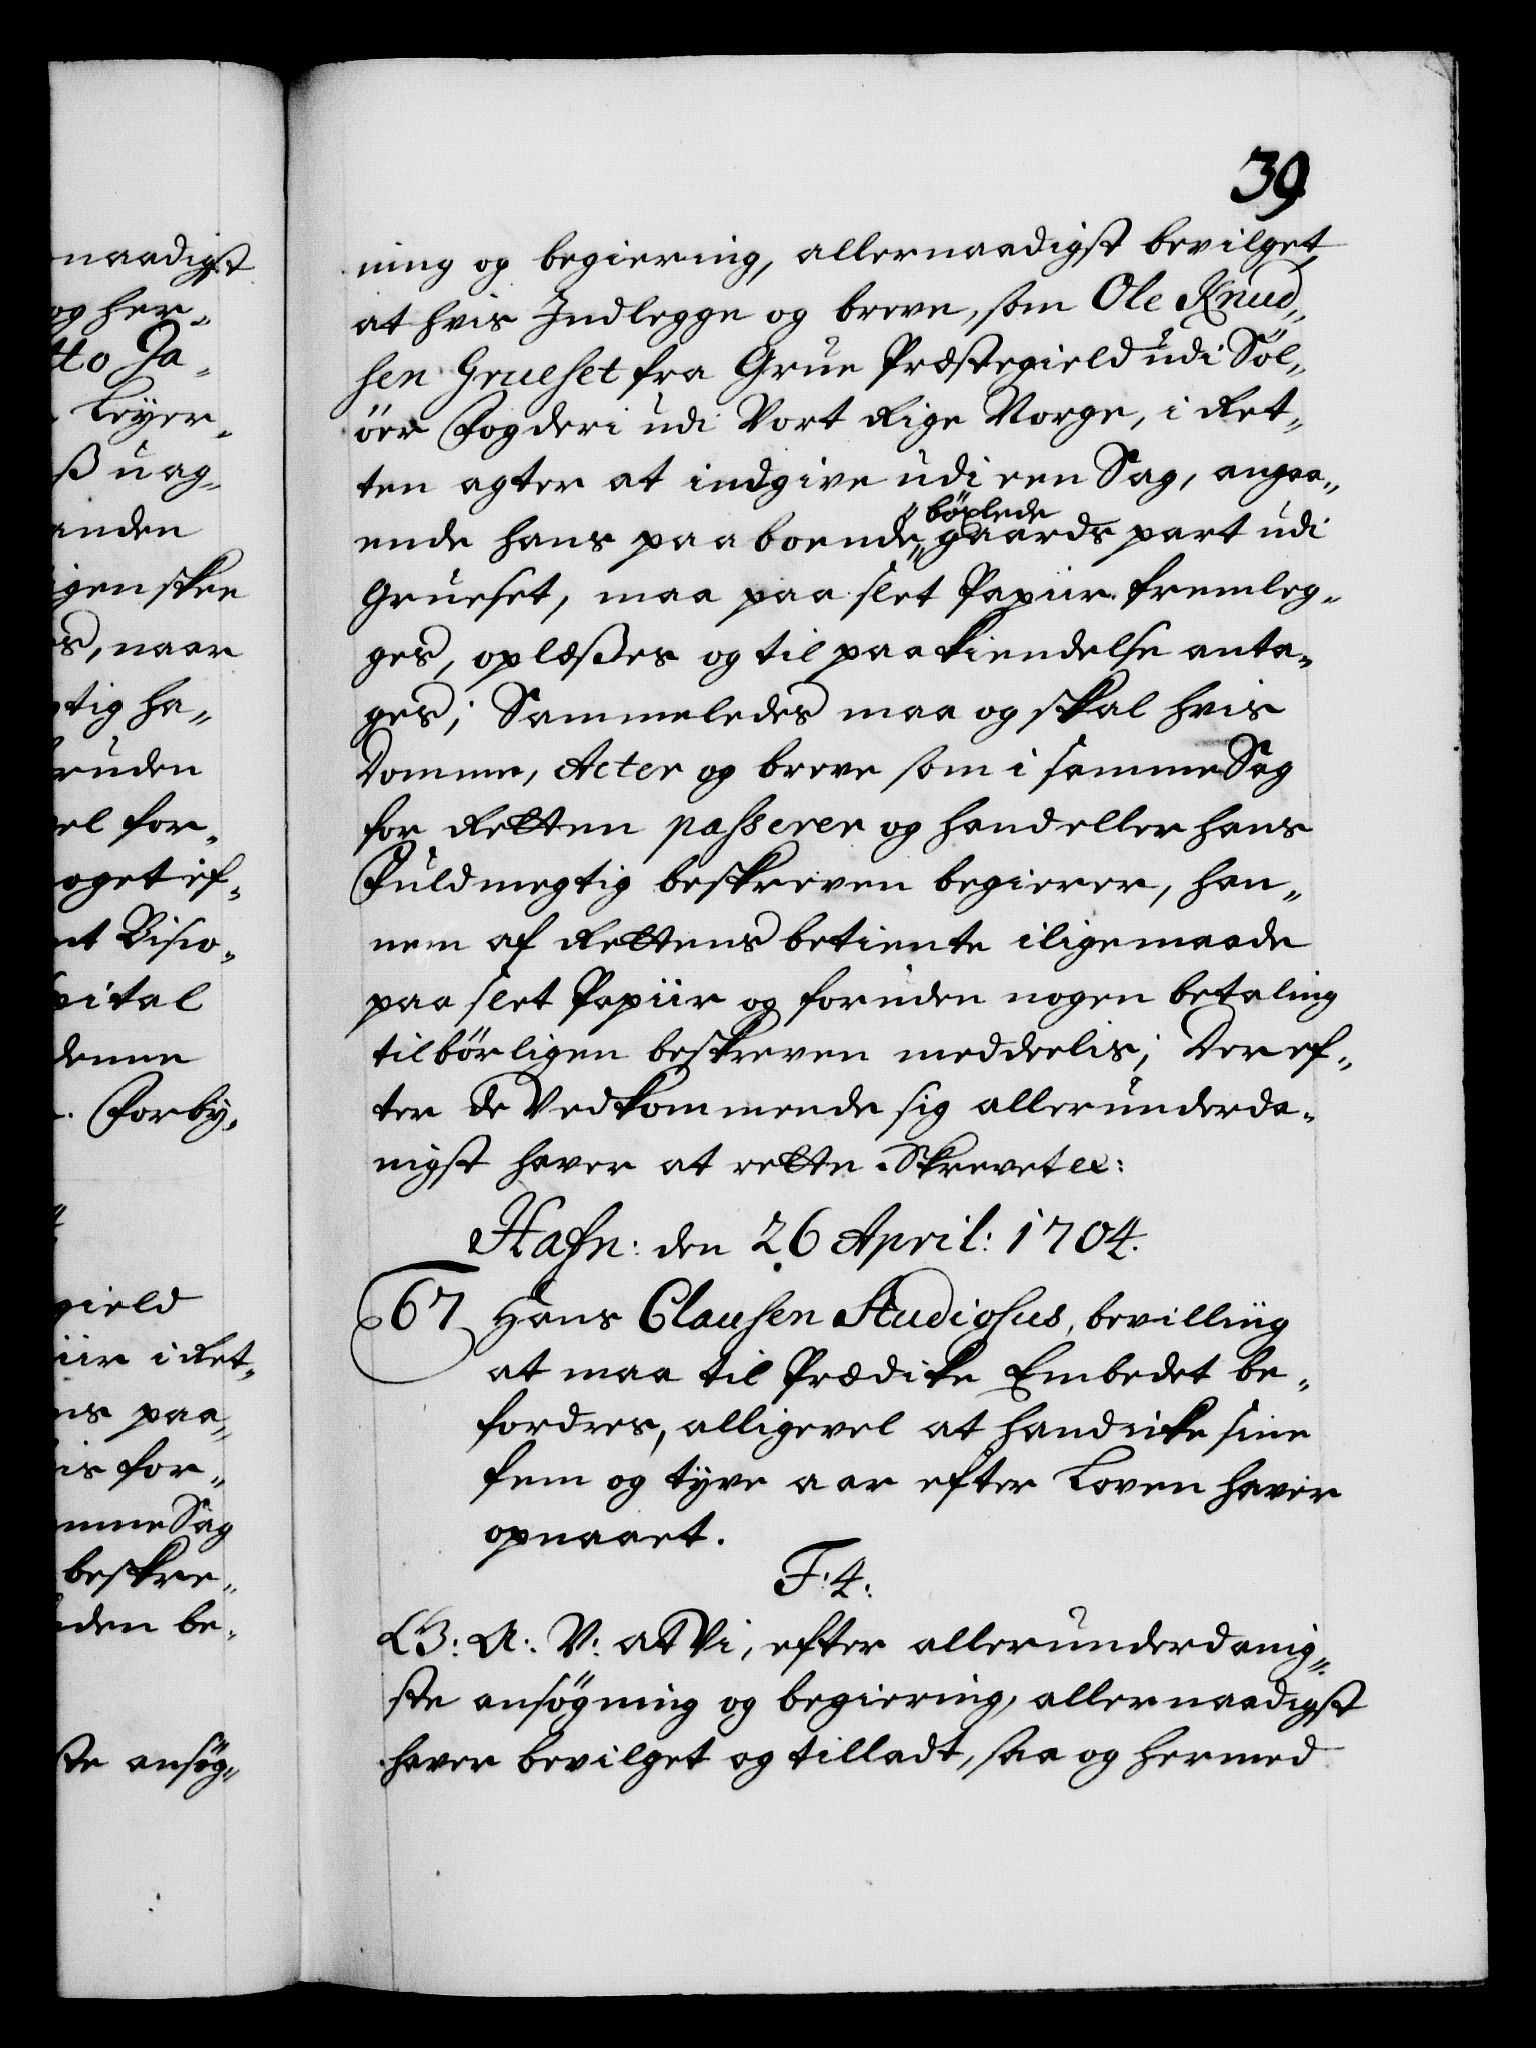 39
ning og begiering, allernaadigst bevilget,
at hvis Indlegge og breve, som Ole Knud„
sen Grueset fra Grue Præstegield udi Söl„
öer Fogderi udi Vort Rige Norge, i Ret„
ten agter at indgive udi een Sag, angaa„
böxlede
ende hans paaboende„ gaards part udi
Grueset, maa paa slet Papiir fremleg„
ges, oplæßes og til paakiendelse anta„
ges; Sammeledes maa og skal hvis
Domme, Acter og breve som i samme Sag
for Retten passerer og hand eller hans
Fuldmegtig beskreven begierer, han„
nem af Rettens betiente iligemaade
paa slet Papiir og foruden nogen betaling
tilbörligen beskreven meddeelis; Der ef„
ter de Vedkommende sig allerunderda„
nigst haver at rette. Skrevet etc:
Hafn: den 26 April: 1704.
67 Hans Clausen Studiosus, bevilling
at maa til Prædike Embedet be„
fordres, alligevel at hand icke sine
fem og tyve aar efter Loven haver
opnaaet.
F: 4:
G: A: V: at Vi, efter allerunderdanig„
ste ansögning og begiering, allernaadigst
haver bevilget og tilladt, saa og hermed
naadigst
og her„
tto Ja„
Leyer„
ß uag„
anden
igen skee
es, naar
gtig ha„
ruden
el for„
oget ef„
nt Bisco„
pital
denne
Forby„
gield
iir i Ret„
ns paa„
is for„
mme Sag
beskre„
den be„
ste ansög„